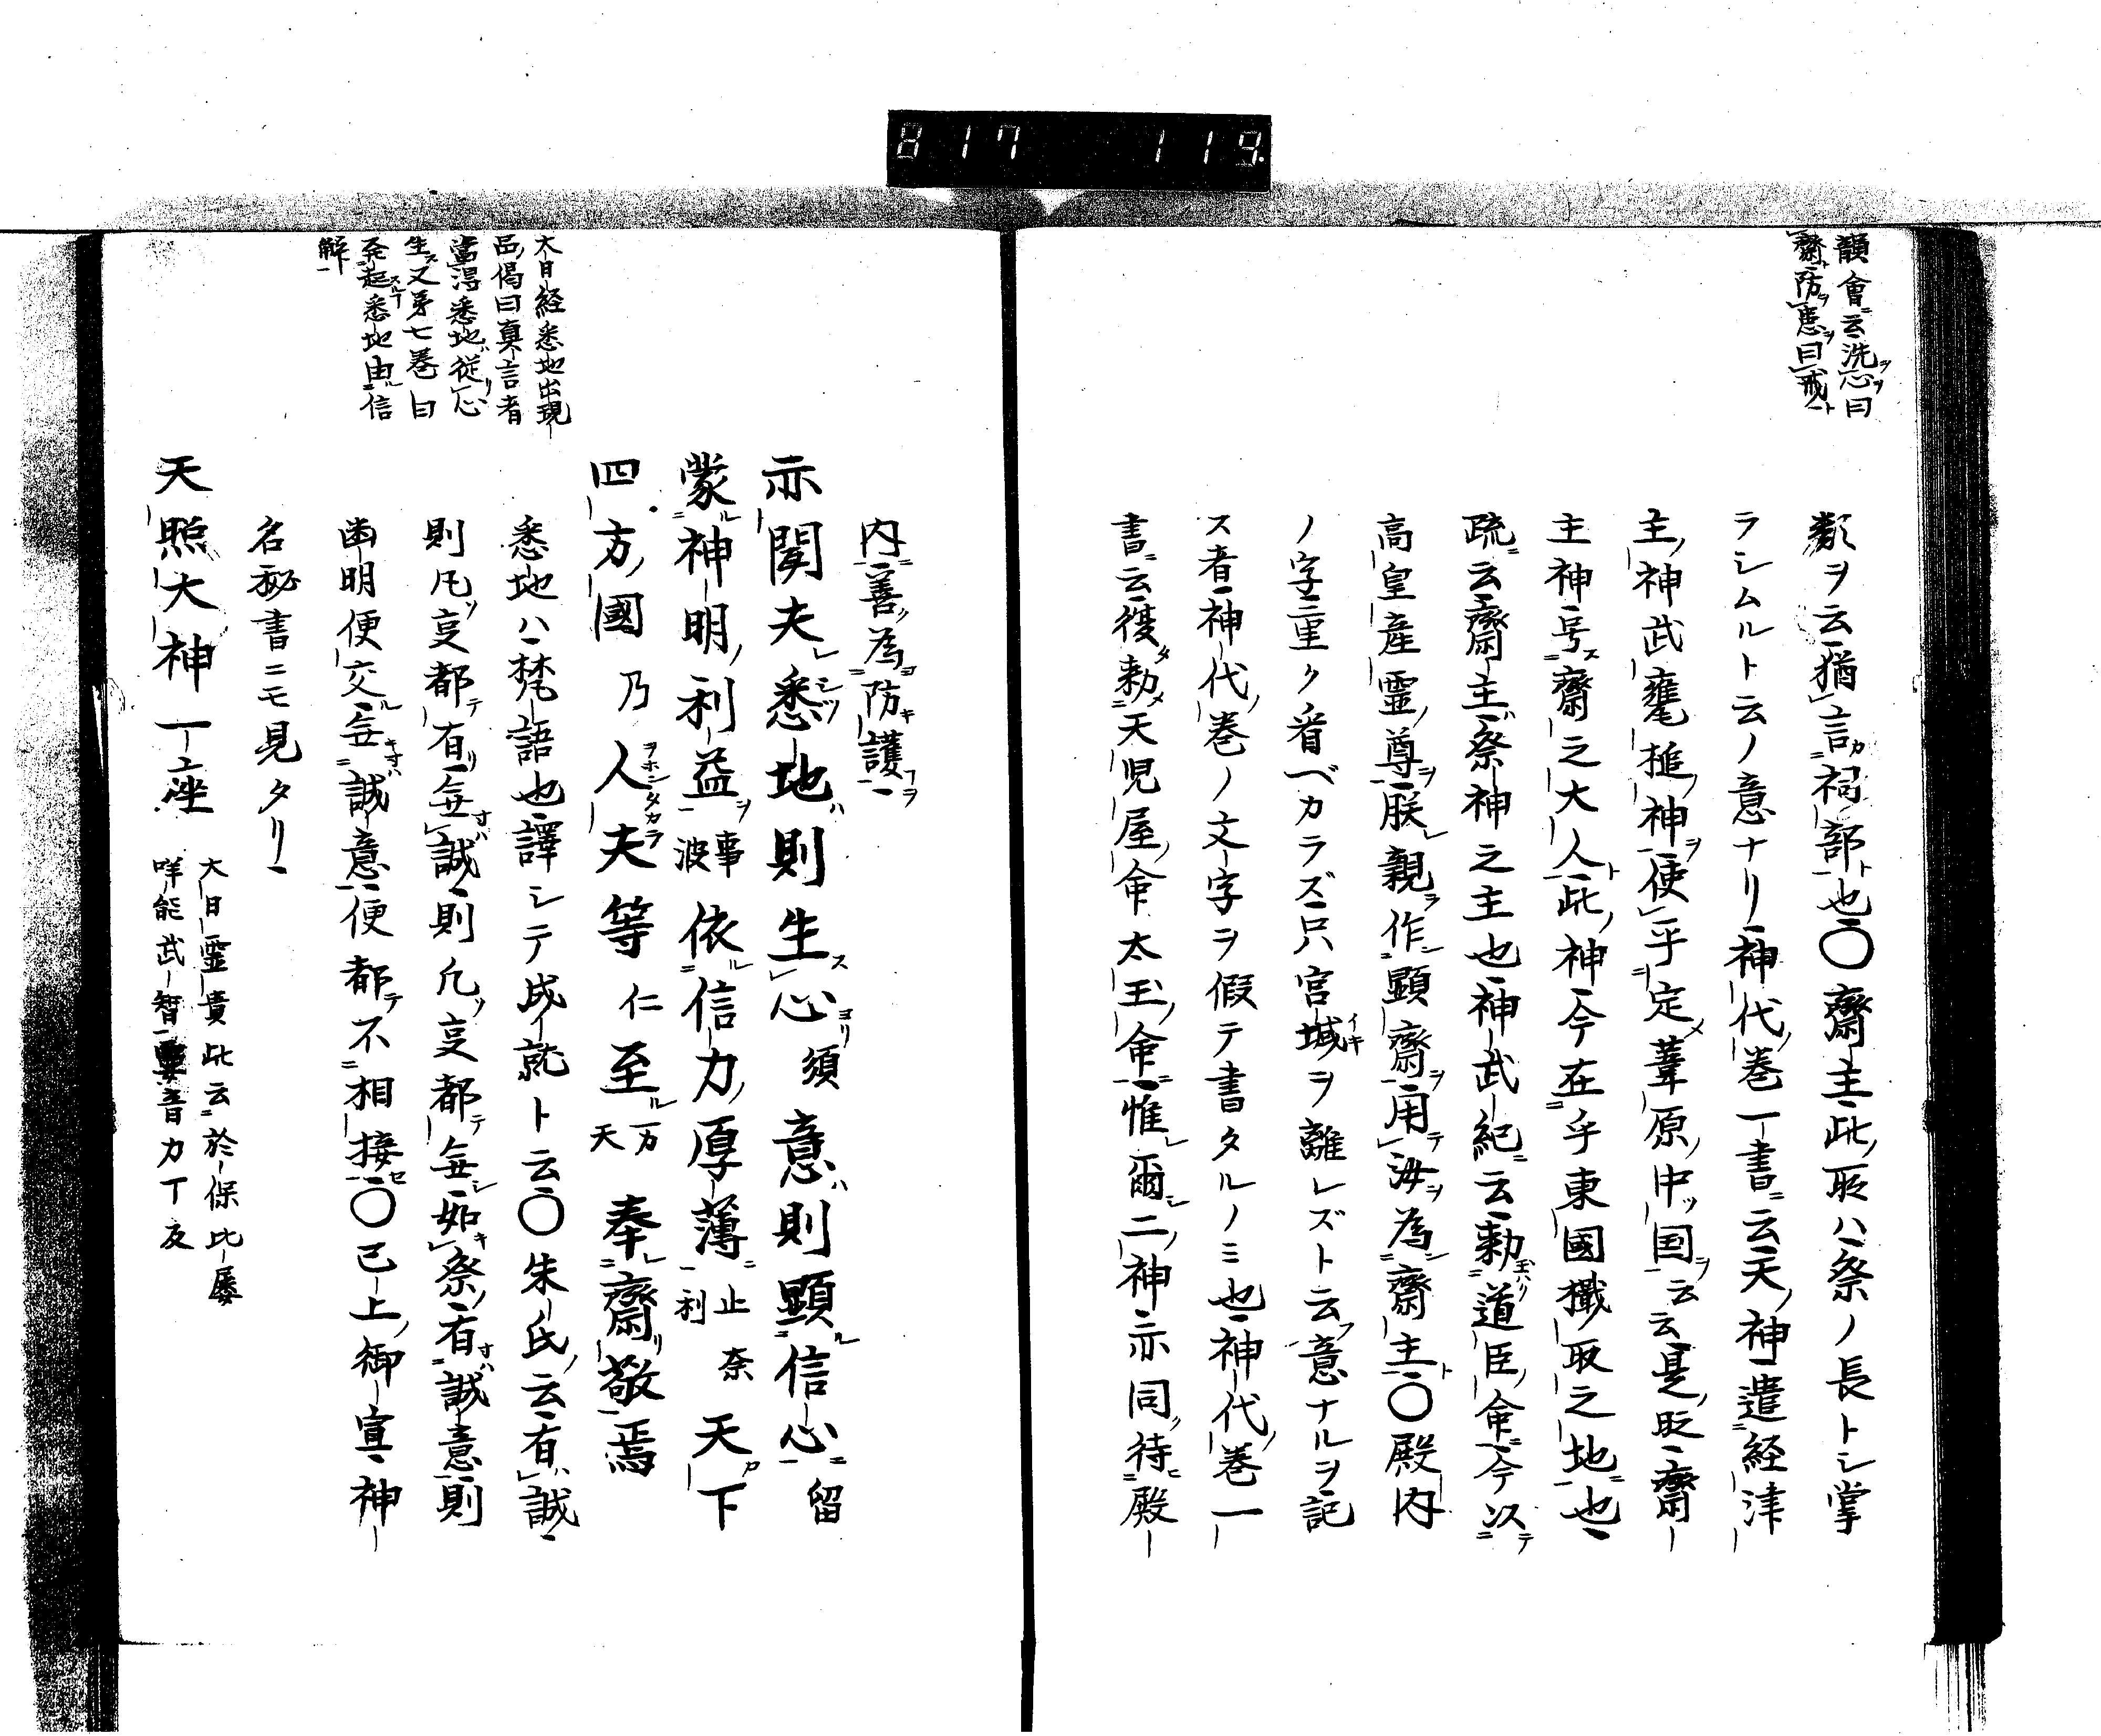 817 119.
韻會云洗心曰
齋防患曰戒
類ヲ云猶言祠部也〇齋主此取ハ祭ノ長トシ掌
ラシムルト云ノ意ナリ神代巻一書云天神遣経津
主神武甕槌神使乎定葦原中国云云是時齋
主神号齋之大人此神今在乎東國檝取之地也
疏云齋主祭神之主也神武紀云勅道臣命今以
高皇産靈尊朕親作顕齋用汝為齋主〇殿内
ノ字重ク看ベカラズ只官城ヲ離レズト云意ナルヲ記
ス者神代巻ノ文字ヲ假テ書タルノミ也神代巻一
書云復勅天児屋命太玉命惟爾二神亦同待殿
内善為防護
大日経悉地出現
品偈曰真言者
當得悉地從心
生又第七巻曰
発起悉地由信
解
亦聞夫悉地則生心須意則顕信心留
蒙神明利益事波依信力厚薄止奈利天下
四方國乃人夫等仁至万天奉齋敬焉
悉地ハ梵語也譯シテ成就ト云〇朱氏云有誠
則凡事都有無誠則凡事都無如祭有誠意則
幽明便交無誠意便都不相接〇已上御宣神
名秘書ニモ見タリ
天照大神一座
大日孁貴此云於保比屢
咩能武智孁音力丁反